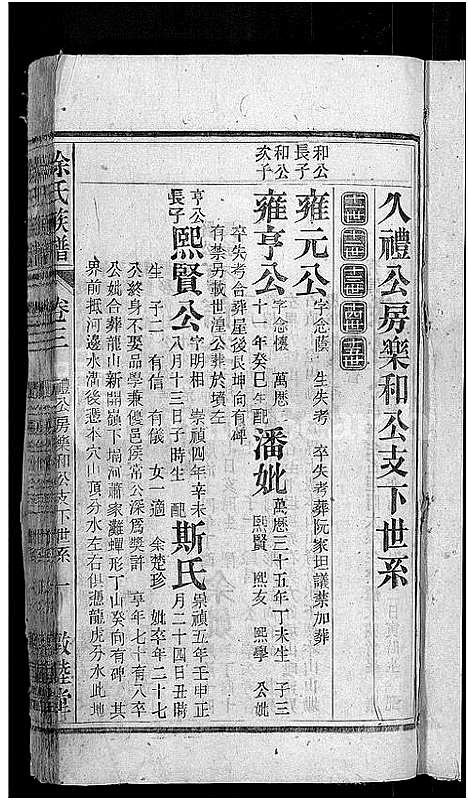 久禮公房樂和公支下世系
十一世 十二世 十三世 十四世 十五世
和公長子 雍元公 字念蔭 生失考 卒失考葬阮家坦議禁加葬
和公次子 雍亨公 字念懷 萬曆二十一年癸巳生配 潘妣 萬曆三十五年丁未生 子三 熙賢 熙友 熙學 公妣
卒失考合葬屋後艮坤向有碑
有禁另載世湟公葬於墳左
亨公長子 熙賢公 字明相 崇禎四年辛未八月十三日子時生 配 斯氏 崇禎五年壬申正月二十四日丑時
生 子二 有信 有儀 女一適 余楚珍 妣卒年二十七
公終身不娶品學兼優邑侯常公深為獎許 享年七十有八卒
公妣合葬龍山新開嶺下塥河蕭家灘蟬形丁山癸向有碑 其
界前抵河邊水溜後憑本穴山頂分水左右俱憑龍虎分水此地
徐氏族譜
卷三
禮公房樂和公支下世系
一
敦睦堂